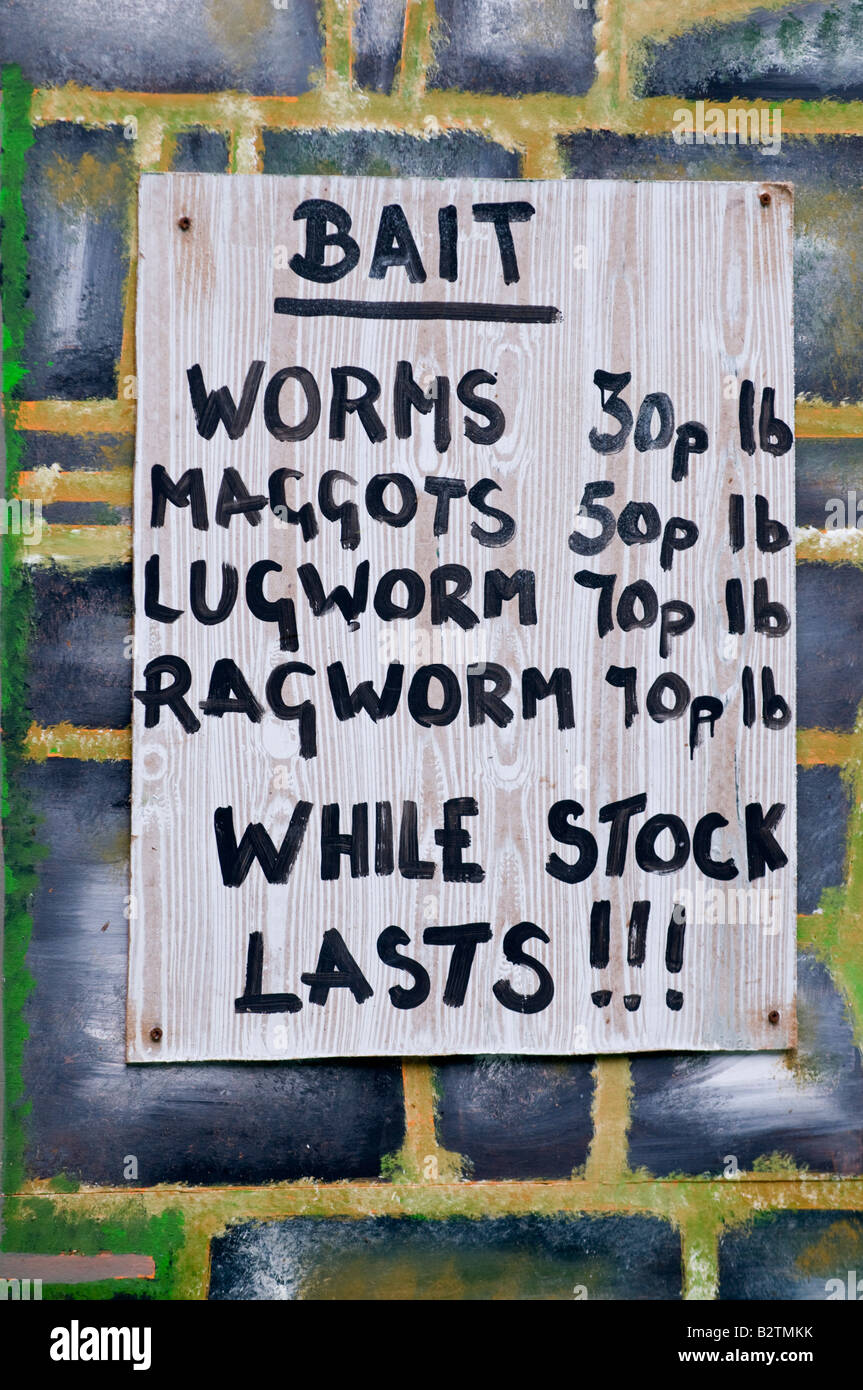 BAIT
WORMS 30p lb
MAGGOTS 50p lb
LUGWORM 70p lb
RAGWORM 70p lb
WHILE STOCK
LASTS !!!
alamy
Image ID: B2TMKK
www.alamy.com